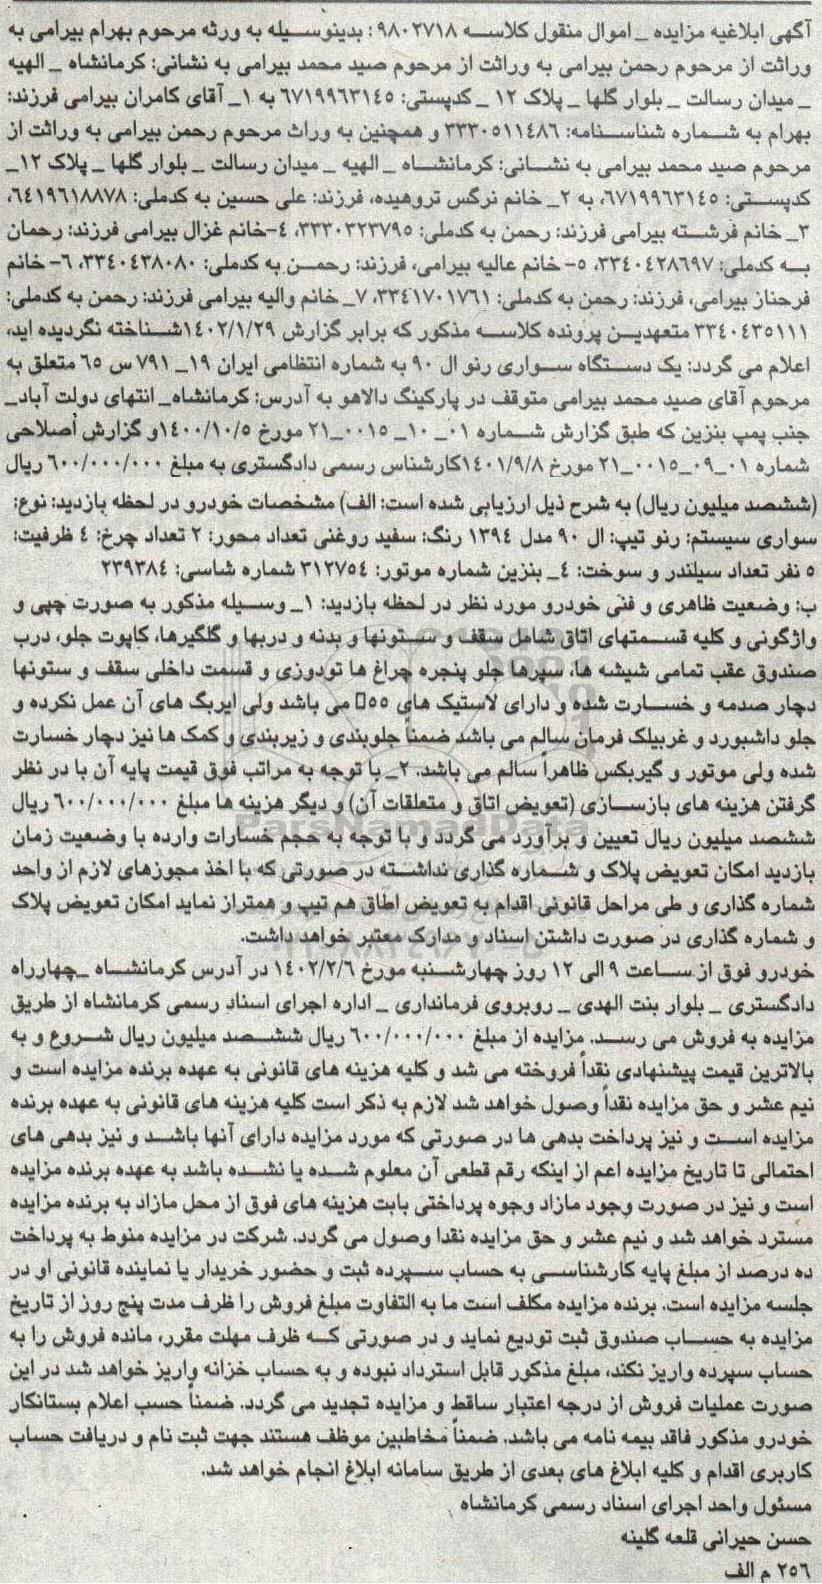 آگهی ابلاغیه مزایده _ اموال منقول کلاسه ۹۸۰۲۷۱۸: بدینوسیله به ورثه مرحوم بهرام بیرامی به
وراثت از مرحوم رحمن بیرامی به وراثت از مرحوم صید محمد بیرامی به نشانی: کرمانشاه _ الهیه
_ میدان رسالت _ بلوار گلها _ پلاک ۱۲ _ کدپستی: ۶۷۱۹۹۶۳۱۴۵ به ۱_ آقای کامران بیرامی فرزند:
بهرام به شماره شناسنامه: ۳۳۳۰۵۱۱۴۸۶ و همچنین به وراث مرحوم رحمن بیرامی به وراثت از
مرحوم صید محمد بیرامی به نشانی: کرمانشاه _ الهیه _ میدان رسالت _ بلوار گلها _ پلاک ۱۲_
کدپستی: ۶۷۱۹۹۶۳۱۴۵، به ۲_ خانم نرگس تروهیده، فرزند: علی حسین به کدملی: ۶۴۱۹۶۱۸۸۷۸،
۳_ خانم فرشته بیرامی فرزند: رحمن به کدملی: ۳۳۳۰۳۲۳۷۹۵، ۴-خانم غزال بیرامی فرزند: رحمان
به کدملی: ۳۳۴۰۴۲۸۶۹۷، ۵- خانم عالیه بیرامی، فرزند: رحمن به کدملی: ۳۳۴۰۴۳۸۰۸۰، ۶- خانم
فرحناز بیرامی، فرزند: رحمن به کدملی: ۳۳۴۱۷۰۱۷۶۱، ۷_ خانم والیه بیرامی فرزند: رحمن به کدملی:
۳۳۴۰۴۳۵۱۱۱ متعهدین پرونده کلاسه مذکور که برابر گزارش ۱۴۰۲/۱/۲۹شناخته نگردیده اید،
اعلام می گردد: یک دستگاه سواری رنو ال ۹۰ به شماره انتظامی ایران ۱۹_ ۷۹۱ س ۶۵ متعلق به
مرحوم آقای صید محمد بیرامی متوقف در پارکینگ دالاهو به آدرس: کرمانشاه_ انتهای دولت آباد_
جنب پمپ بنزین که طبق گزارش شماره ۰۱_ ۱۰_ ۰۰۱۵_۲۱ مورخ ۱۴۰۰/۱۰/۵و گزارش اصلاحی
شماره ۰۱_۰۹_۰۰۱۵_۲۱ مورخ ۱۴۰۱/۹/۸کارشناس رسمی دادگستری به مبلغ ۶۰۰/۰۰۰/۰۰۰ ریال
(ششصد میلیون ریال) به شرح ذیل ارزیابی شده است: الف) مشخصات خودرو در لحظه بازدید: نوع:
سواری سیستم: رنو تیپ: ال ۹۰ مدل ۱۳۹۴ رنگ: سفید روغنی تعداد محور: ۲ تعداد چرخ: ۴ ظرفیت:
۵ نفر تعداد سیلندر و سوخت: ۴_ بنزین شماره موتور: ۳۱۲۷۵۴ شماره شاسی: ۲۳۹۳۸۴
ب: وضعیت ظاهری و فنی خودرو مورد نظر در لحظه بازدید: ۱_ وسیله مذکور به صورت چپی و
واژگونی و کلیه قسمتهای اتاق شامل سقف و ستونها و بدنه و دربها و گلگیرها، کاپوت جلو، درب
صندوق عقب تمامی شیشه ها، سپرها جلو پنجره چراغ ها تودوزی و قسمت داخلی سقف و ستونها
دچار صدمه و خسارت شده و دارای لاستیک های ۵۵٪ می باشد ولی ایربگ های آن عمل نکرده و
جلو داشبورد و غربیلک فرمان سالم می باشد ضمناً جلوبندی و زیربندی و کمک ها نیز دچار خسارت
شده ولی موتور و گیربکس ظاهراً سالم می باشد. ۲_ با توجه به مراتب فوق قیمت پایه آن با در نظر
گرفتن هزینه های بازسازی (تعویض اتاق و متعلقات آن) و دیگر هزینه ها مبلغ ۶۰۰/۰۰۰/۰۰۰ ریال
ششصد میلیون ریال تعیین و برآورد می گردد و با توجه به حجم خسارات وارده با وضعیت زمان
بازدید امکان تعویض پلاک و شماره گذاری نداشته در صورتی که با اخذ مجوزهای لازم از واحد
شماره گذاری و طی مراحل قانونی اقدام به تعویض اطاق هم تیپ و همتراز نماید امکان تعویض پلاک
و شماره گذاری در صورت داشتن اسناد و مدارک معتبر خواهد داشت.
خودرو فوق از ساعت ۹ الی ۱۲ روز چهارشنبه مورخ ۱۴۰۲/۲/۶ در آدرس کرمانشاه _چهارراه
دادگستری _ بلوار بنت الهدی _ روبروی فرمانداری _ اداره اجرای اسناد رسمی کرمانشاه از طریق
مزایده به فروش می رسد. مزایده از مبلغ ۶۰۰/۰۰۰/۰۰۰ ریال ششصد میلیون ریال شروع و به
بالاترین قیمت پیشنهادی نقداً فروخته می شد و کلیه هزینه های قانونی به عهده برنده مزایده است و
نیم عشر و حق مزایده نقداً وصول خواهد شد لازم به ذکر است کلیه هزینه های قانونی به عهده برنده
مزایده است و نیز پرداخت بدهی ها در صورتی که مورد مزایده دارای آنها باشد و نیز بدهی های
احتمالی تا تاریخ مزایده اعم از اینکه رقم قطعی آن معلوم شده یا نشده باشد به عهده برنده مزایده
است و نیز در صورت وجود مازاد وجوه پرداختی بابت هزینه های فوق از محل مازاد به برنده مزایده
مسترد خواهد شد و نیم عشر و حق مزایده نقدا وصول می گردد. شرکت در مزایده منوط به پرداخت
ده درصد از مبلغ پایه کارشناسی به حساب سپرده ثبت و حضور خریدار یا نماینده قانونی او در
جلسه مزایده است. برنده مزایده مکلف است ما به التفاوت مبلغ فروش را ظرف مدت پنج روز از تاریخ
مزایده به حساب صندوق ثبت تودیع نماید و در صورتی که ظرف مهلت مقرر، مانده فروش را به
حساب سپرده واریز نکند، مبلغ مذکور قابل استرداد نبوده و به حساب خزانه واریز خواهد شد در این
صورت عملیات فروش از درجه اعتبار ساقط و مزایده تجدید می گردد. ضمناً حسب اعلام بستانکار
خودرو مذکور فاقد بیمه نامه می باشد. ضمناً مخاطبین موظف هستند جهت ثبت نام و دریافت حساب
کاربری اقدام و کلیه ابلاغ های بعدی از طریق سامانه ابلاغ انجام خواهد شد.
مسئول واحد اجرای اسناد رسمی کرمانشاه
حسن حیرانی قلعه گلینه
۲۵۶ م الف
ParsNamadData